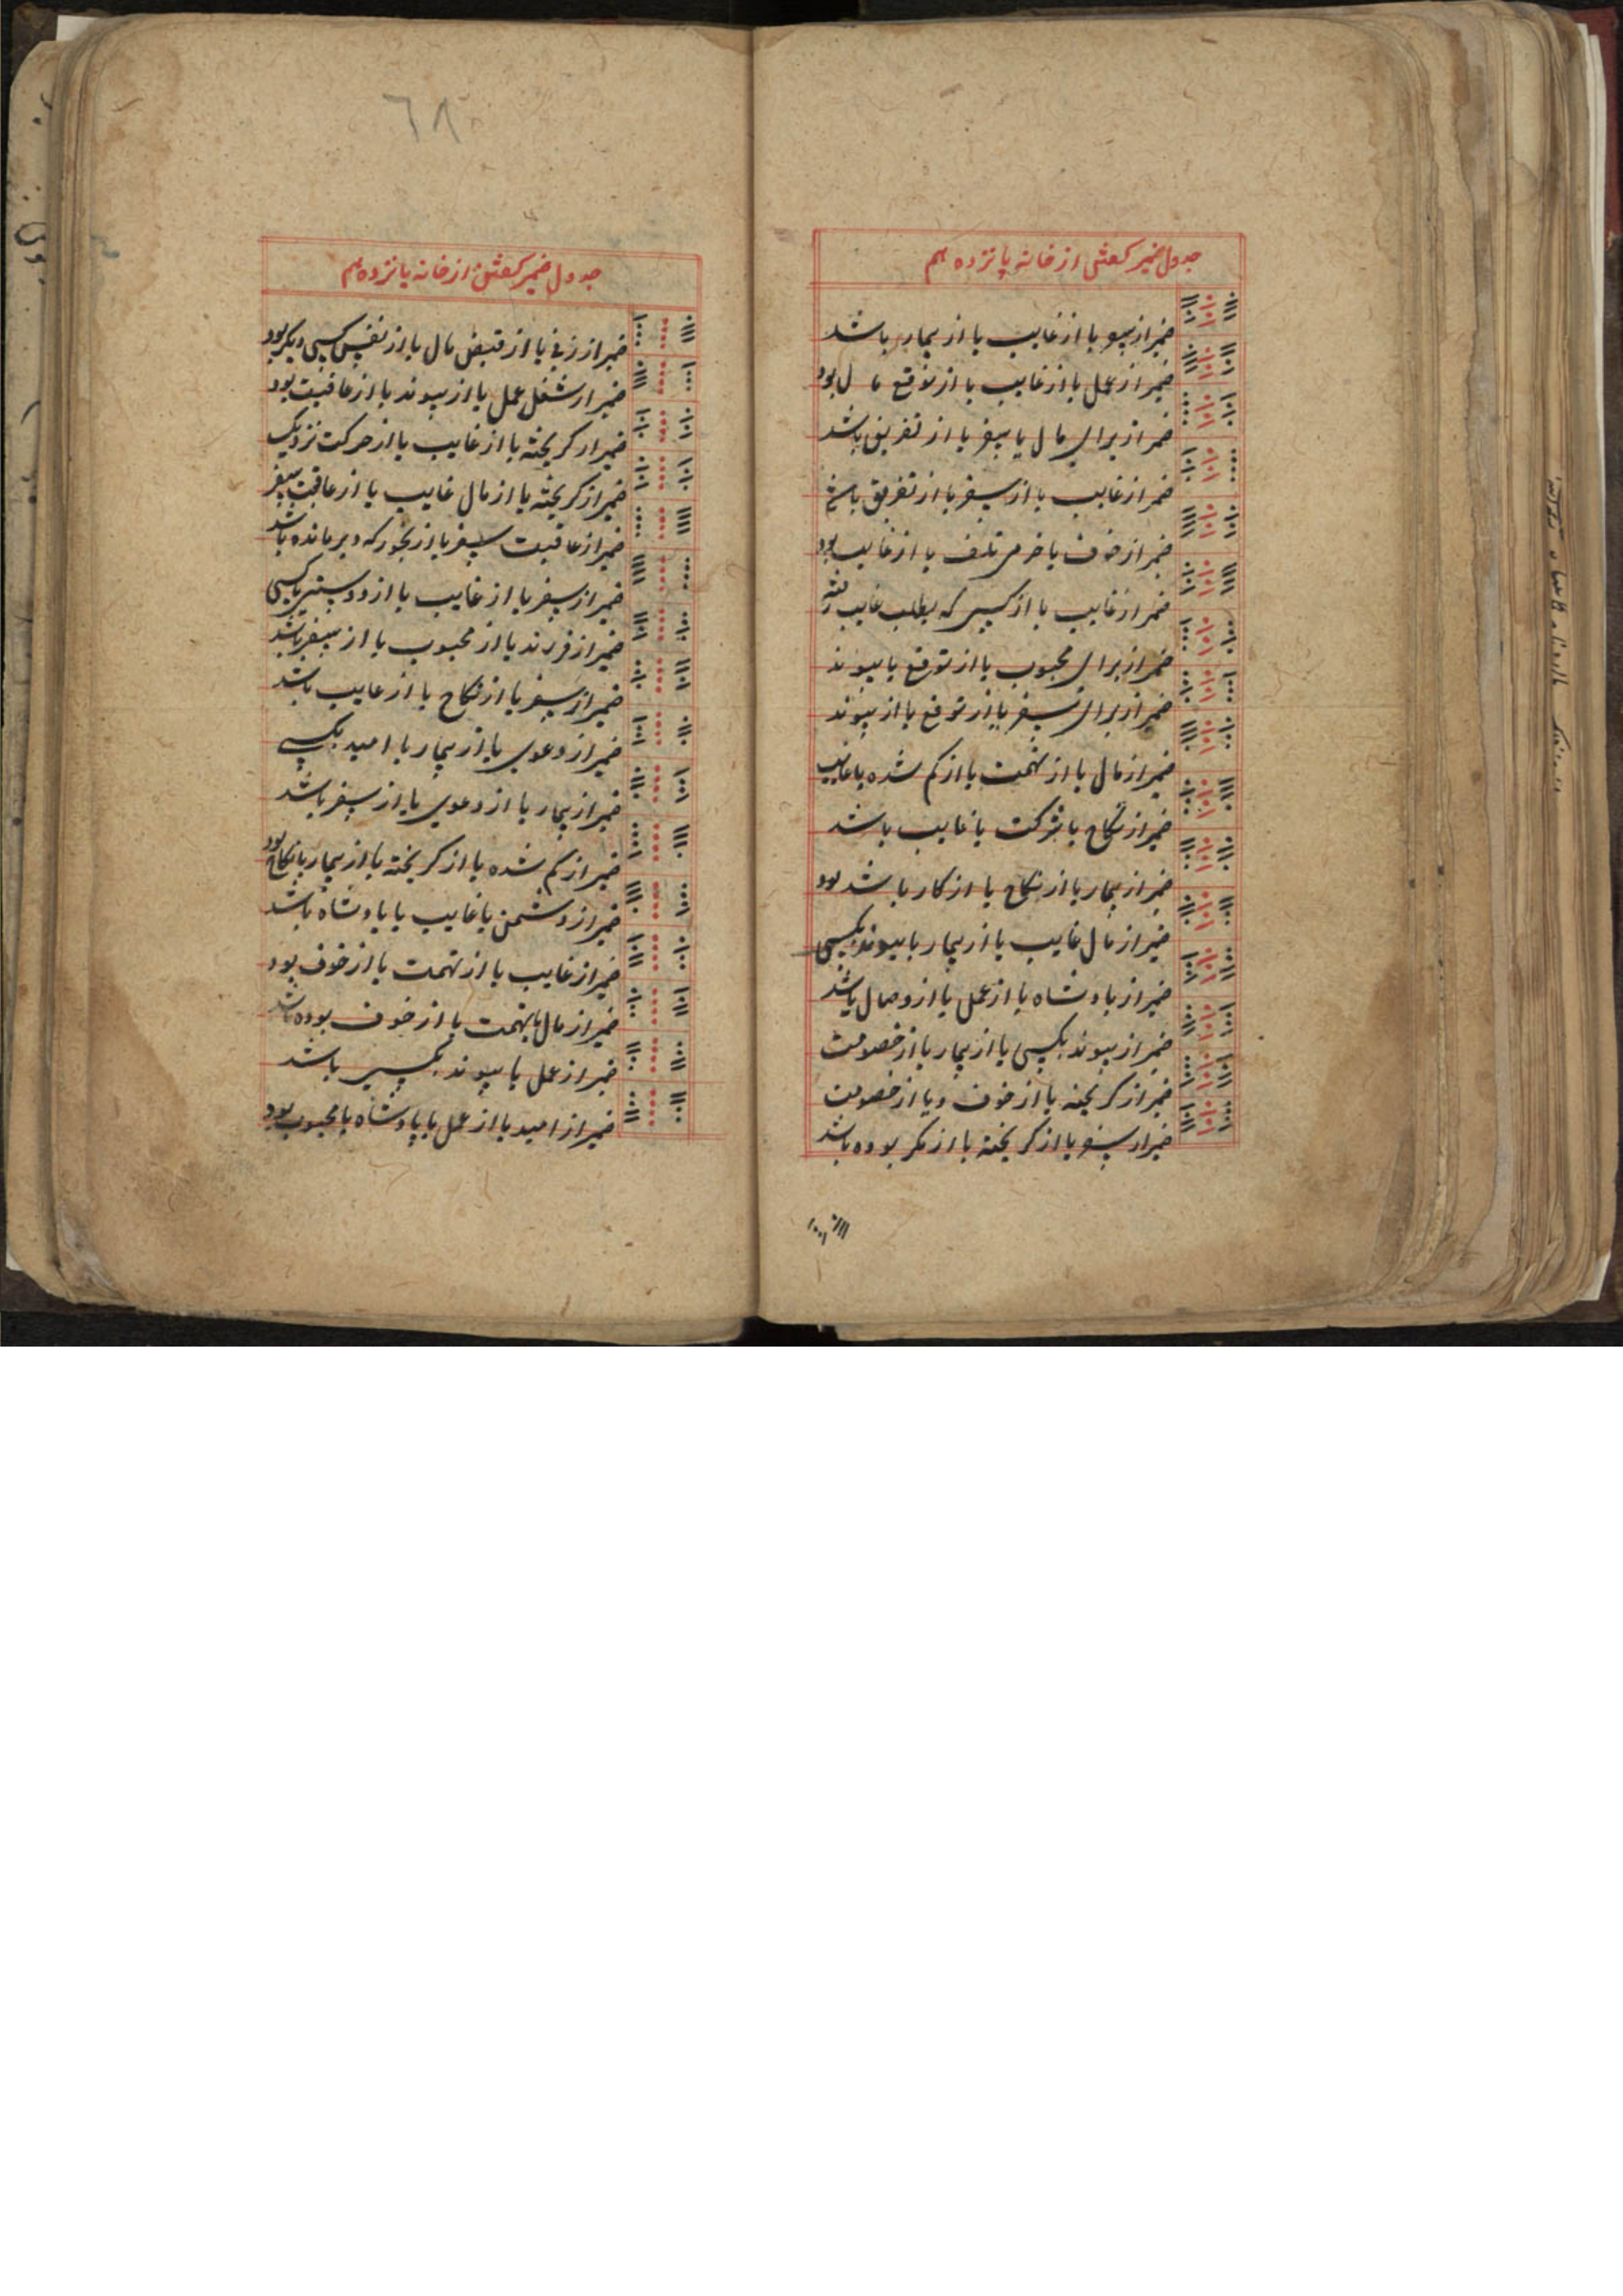 جدول ضمیر گفتن از خانه پانزدهم
ضمیر از سفر یا از غایب یا از بیمار باشد
ضمیر از عمل یا از غایب یا از توقع مال بود
ضمیر از برای مال یا سفر یا از تفریق باشد
ضمیر از غایب یا از سفر یا از تفریق باشد
ضمیر از خوف یا تلف یا از غایب بود
ضمیر از غایب یا از کسی که بطلب غایب رفته
ضمیر از برای محبوب یا از توقع یا پیوند
ضمیر از برای سفر یا از توقع یا از پیوند
ضمیر از مال یا از تهمت یا از کم شده یا غایب
ضمیر از نکاح یا شرکت یا غایب باشد
ضمیر از بیمار یا از نکاح یا از کار باشد بود
ضمیر از مال غایب یا از بیمار یا پیوند بکسی
ضمیر از پادشاه یا از عمل یا از وصال باشد
ضمیر از پیوند بکسی یا از بیمار یا از خصومت
ضمیر از کریخته یا از خوف و یا از خصومت
ضمیر از سفر یا از کریخته یا از مکر بوده باشد
٦٨
جدول ضمیر گفتن از خانه پانزدهم
ضمیر از زنی یا از قبض مال یا از نفس کسی دیکر بود
ضمیر از شغل عمل یا از پیوند یا از عاقبت بود
ضمیر از کریخته یا از غایب یا از حرکت نزدیک
ضمیر از کریخته یا از مال غایب یا از عاقبت سفر
ضمیر از عاقبت سفر یا از رنجور که دیر مانده باشد
ضمیر از سفر یا از غایب یا از دوستی با کسی
ضمیر از فرزند یا از محبوب یا از سفر باشد
ضمیر از سفر یا از نکاح یا از غایب باشد
ضمیر از دعوی یا از بیمار یا امید بکسی
ضمیر از بیمار یا از دعوی یا از سفر باشد
ضمیر از کم شده یا از کریخته یا از بیمار یا نکاح بود
ضمیر از دشمن یا غایب یا پادشاه باشد
ضمیر از غایب یا از تهمت یا از خوف بود
ضمیر از مال یا تهمت یا از خوف بوده باشد
ضمیر از عمل یا پیوند بکسی باشد
ضمیر از امید یا از عمل یا پادشاه یا محبوب بود